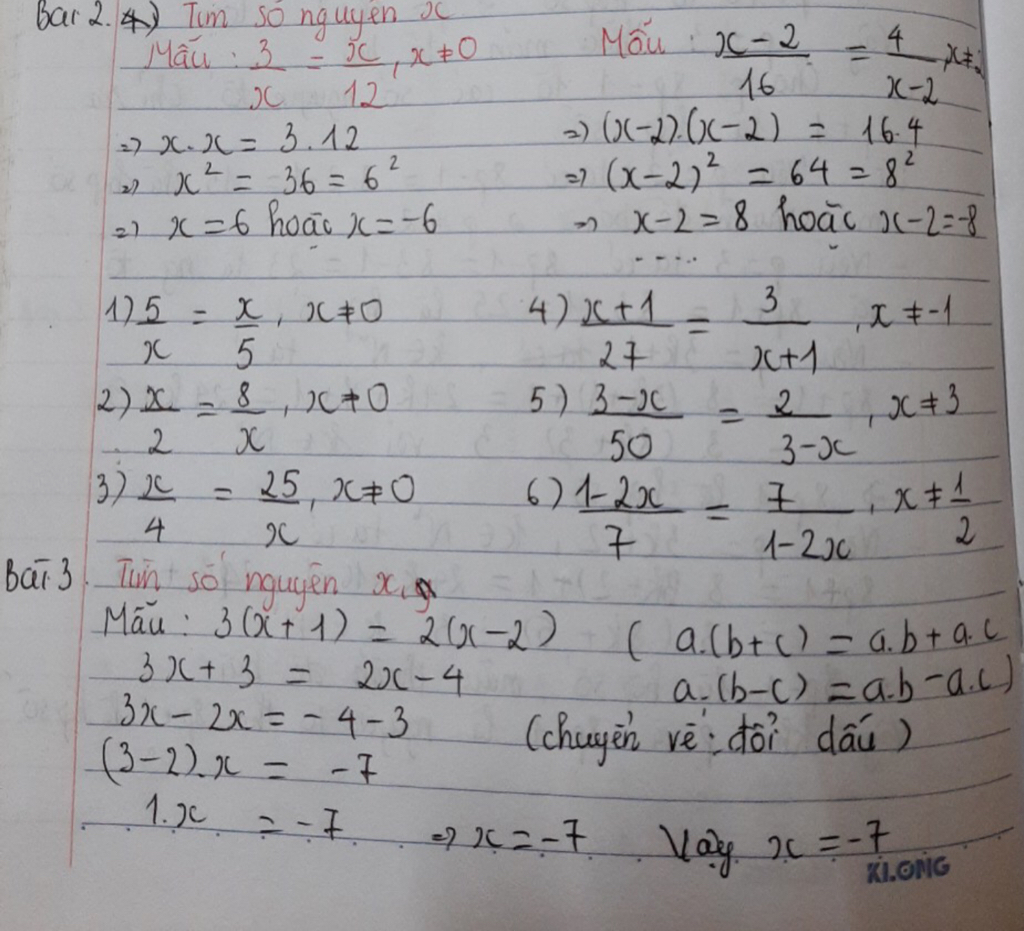 Bài 2. 4) Tìm số nguyên x
Mẫu : 3/x = x/12, x ≠ 0
⇒ x.x = 3.12
⇒ x² = 36 = 6²
⇒ x = 6 hoặc x = -6
Mẫu : x-2/16 = 4/x-2, x ≠ 2
⇒ (x-2).(x-2) = 16.4
⇒ (x-2)² = 64 = 8²
⇒ x-2 = 8 hoặc x-2 = -8
.....
1) 5/x = x/5, x ≠ 0
2) x/2 = 8/x, x ≠ 0
3) x/4 = 25/x, x ≠ 0
4) x+1/27 = 3/x+1, x ≠ -1
5) 3-x/50 = 2/3-x, x ≠ 3
6) 1-2x/7 = 7/1-2x, x ≠ 1/2
Bài 3. Tìm số nguyên x,
Mẫu : 3(x+1) = 2(x-2) ( a.(b+c) = a.b + a.c
3x + 3 = 2x - 4 a.(b-c) = a.b - a.c)
3x - 2x = -4 - 3 (chuyển vế : đổi dấu)
(3-2).x = -7
1.x = -7 ⇒ x = -7 Vậy x = -7
KLONG